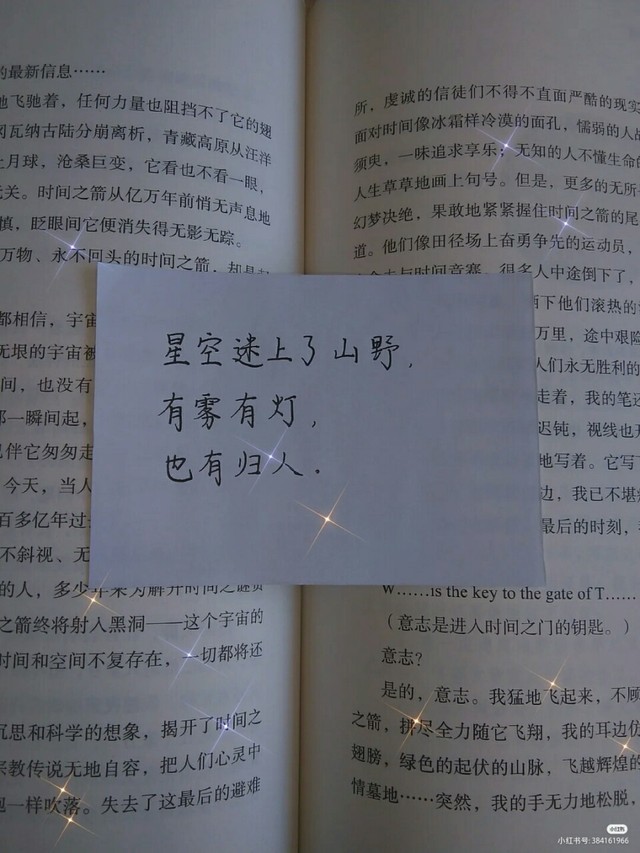 的最新信息……
地飞驰着，任何力量也阻挡不了它的翅
冈瓦纳古陆分崩离析，青藏高原从汪洋
上月球，沧桑巨变，它看也不看一眼，
无关。时间之箭从亿万年前悄无声息地
慎，眨眼间它便消失得无影无踪。
万物、永不回头的时间之箭，却是
都相信，宇宙
无垠的宇宙被
间，也没有
那一瞬间起，
已伴它匆匆走
今天，当人
百多亿年过去
不斜视、无
的人，多少年来为解开时间之谜
之箭终将射入黑洞——这个宇宙的
时间和空间不复存在，一切都将还
沉思和科学的想象，揭开了时间之
宗教传说无地自容，把人们心灵中
一样吹落。失去了这最后的避难
星空迷上了山野，
有雾有灯，
也有归人．
所，虔诚的信徒们不得不直面严酷的现实
面对时间像冰霜样冷漠的面孔，懦弱的人
须臾，一味追求享乐；无知的人不懂生命的
人生草草地画上句号。但是，更多的无所
幻梦决绝，果敢地紧紧握住时间之箭的尾
道。他们像田径场上奋勇争先的运动员，
去与时间竞赛，很多人中途倒下了，
下他们滚热的
万里，途中艰险
人们永无胜利的
走着，我的笔还
迟钝，视线也开
地写着。它写下
边，我已不堪
最后的时刻，
W……is the key to the gate of T……
（意志是进入时间之门的钥匙。）
意志？
是的，意志。我猛地飞起来，不顾
之箭，拼尽全力随它飞翔，我的耳边仿
翅膀，绿色的起伏的山脉，飞越辉煌的
情墓地……突然，我的手无力地松脱，
小红书
小红书号: 384161966